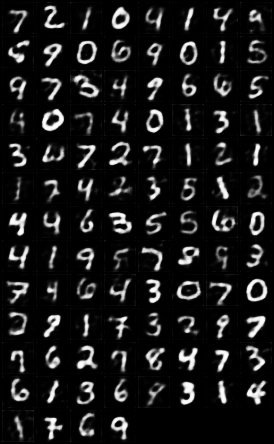 7 2 1 0 4 1 4 9
5 9 0 6 9 0 1 5
9 7 3 4 9 6 6 5
4 0 7 4 0 1 3 1
3 6 7 2 7 1 2 1
1 7 4 2 3 5 1 2
4 4 6 3 5 5 6 0
4 1 9 5 7 8 9 3
7 4 6 4 3 0 7 0
2 9 1 7 3 2 9 7
7 6 2 7 8 4 7 3
6 1 3 6 9 3 1 4
1 7 6 9